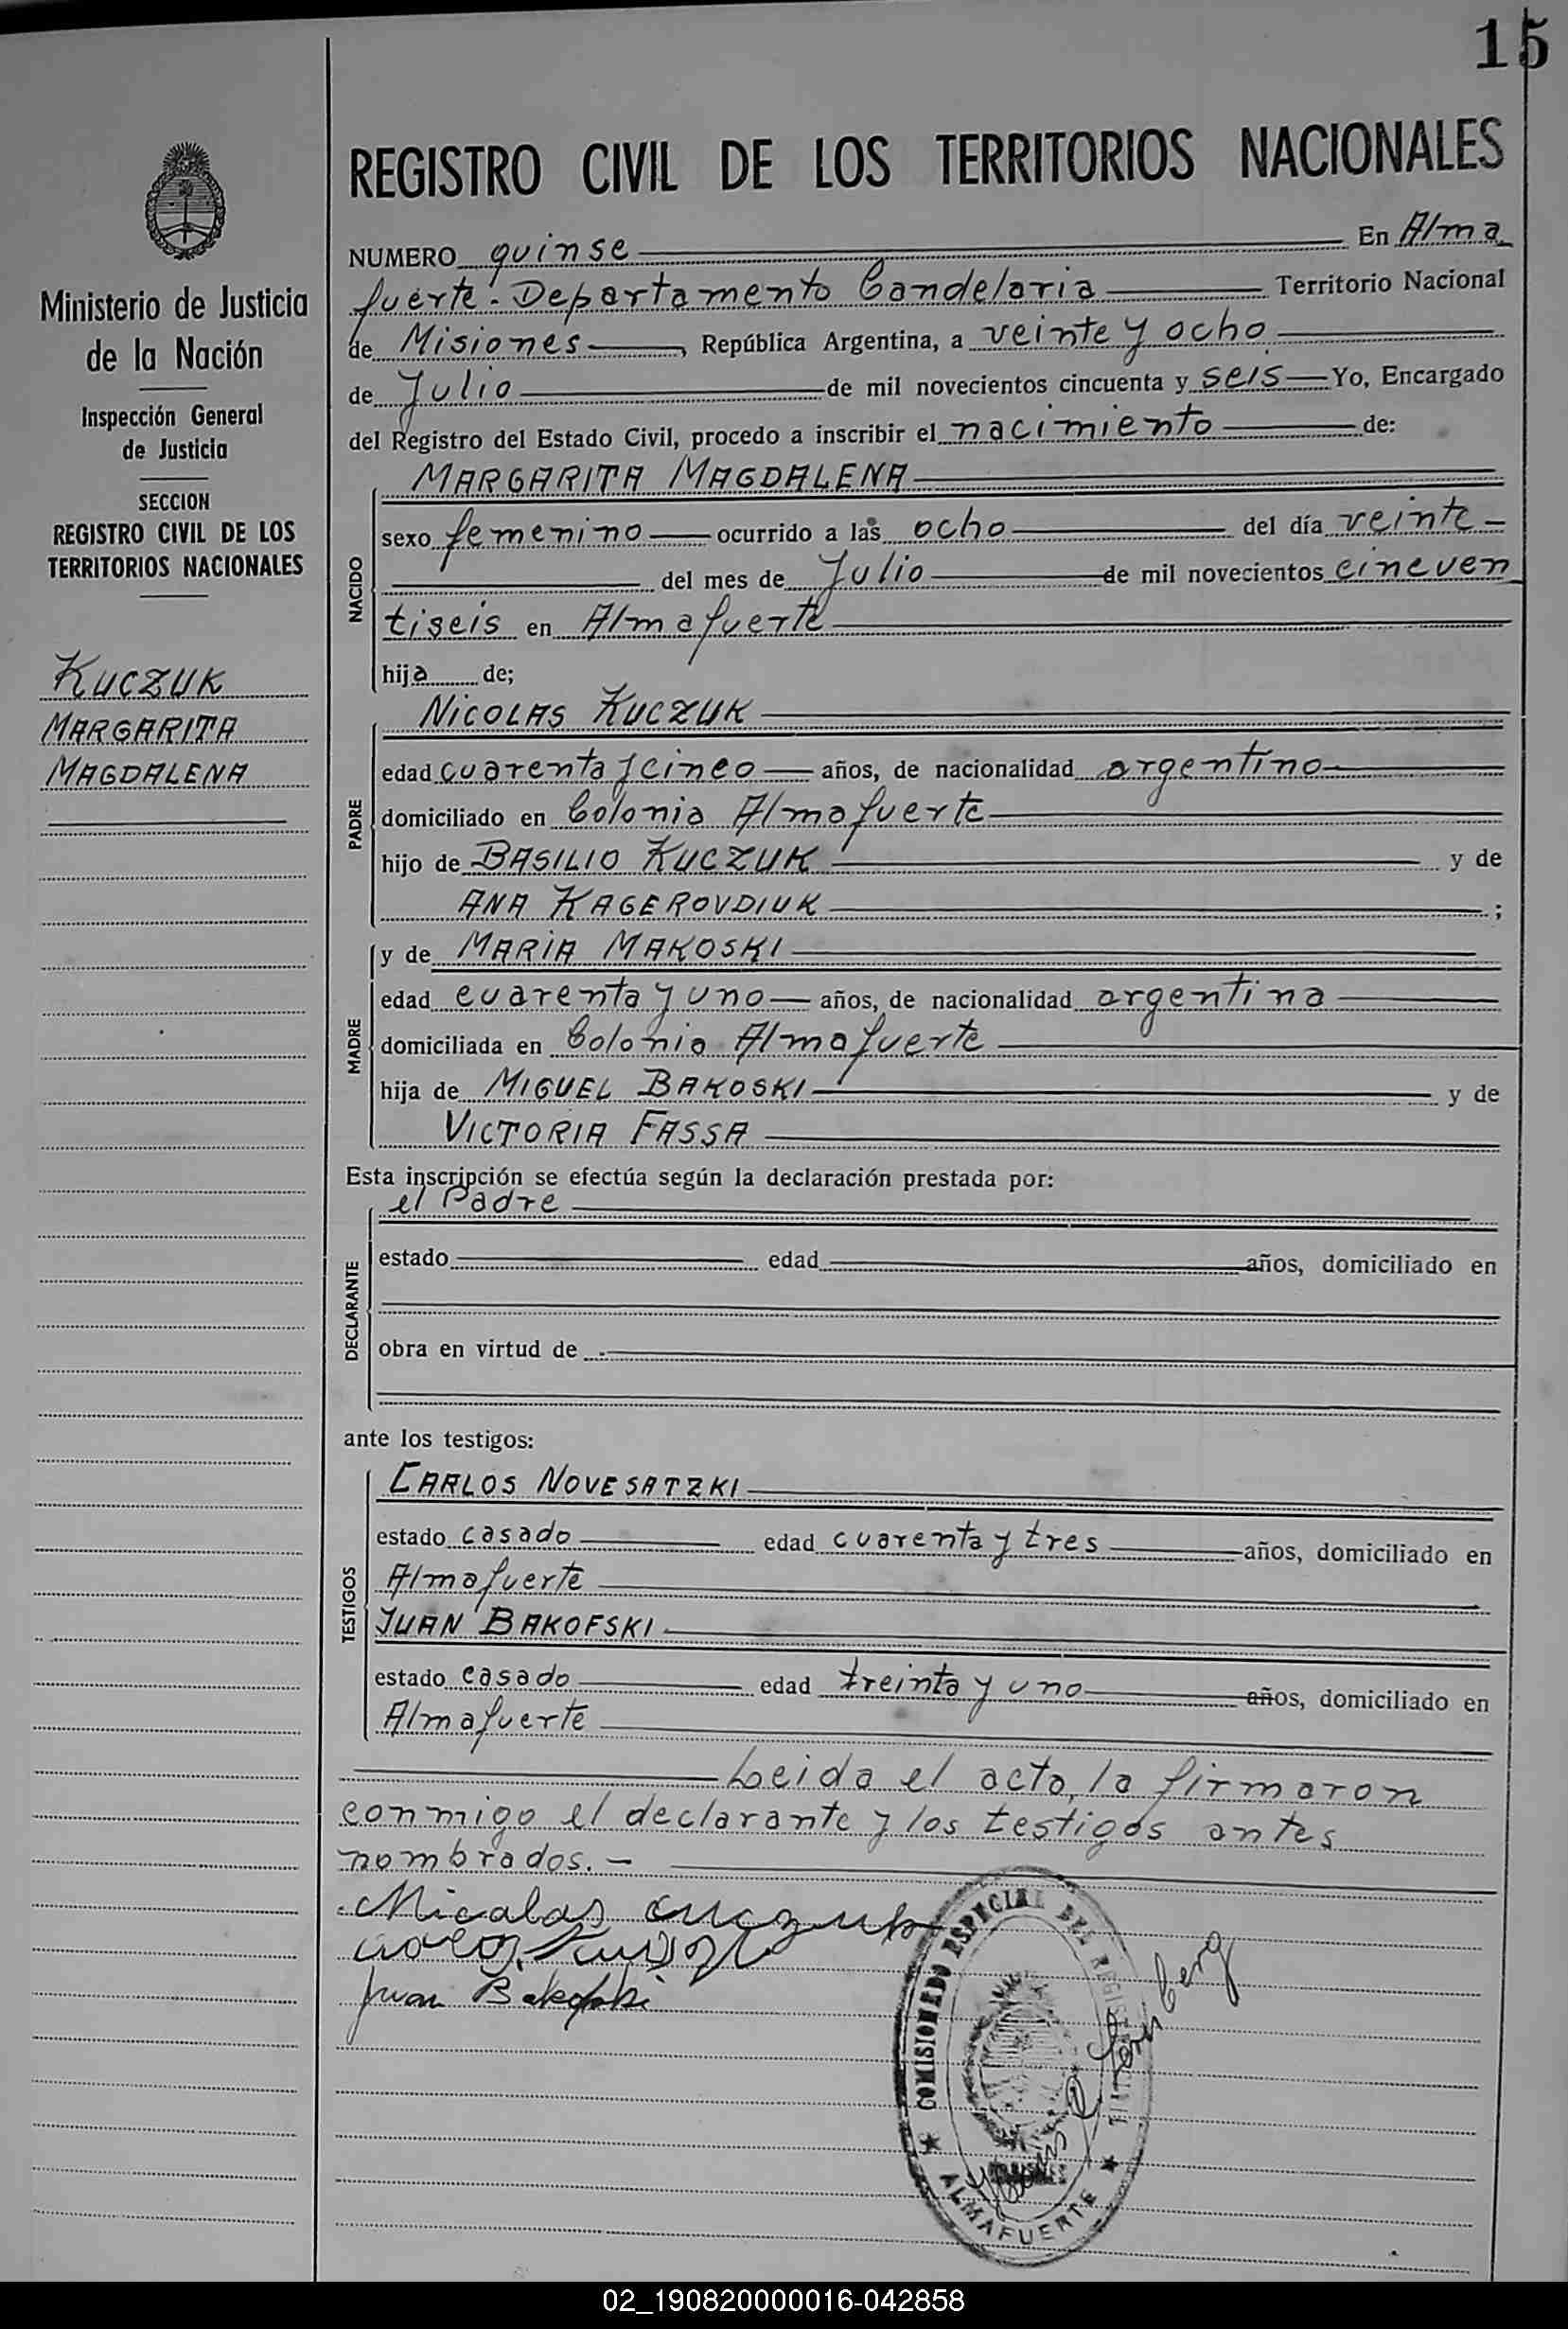 15
REGISTRO CIVIL DE LOS TERRITORIOS NACIONALES
NUMERO quinse En Alma
fuerte.- Departamento Candelaria Territorio Nacional
de Misiones, República Argentina, a veinte y ocho
de Julio de mil novecientos cincuenta y seis Yo, Encargado
del Registro del Estado Civil, procedo a inscribir el nacimiento de:
Ministerio de Justicia
de la Nación
Inspección General
de Justicia
SECCION
REGISTRO CIVIL DE LOS
TERRITORIOS NACIONALES
KUCZUK
MARGARITA
MAGDALENA
NACIDO
MARGARITA MAGDALENA
sexo femenino ocurrido a las ocho del día veinte
del mes de Julio de mil novecientos cincuen
tiseis en Almafuerte
hija de;
PADRE
NICOLAS KUCZUK
edad cuarenta y cinco años, de nacionalidad argentino
domiciliado en Colonia Almafuerte
hijo de BASILIO KUCZUK y de
ANA KAGEROVDIUK ;
MADRE
y de MARIA MAKOSKI
edad cuarenta y uno años, de nacionalidad argentina
domiciliada en Colonia Almafuerte
hija de MIGUEL BAKOSKI y de
VICTORIA FASSA
Esta inscripción se efectúa según la declaración prestada por:
DECLARANTE
el Padre
estado edad años, domiciliado en
obra en virtud de
ante los testigos:
TESTIGOS
CARLOS NOVESATZKI
estado casado edad cuarenta y tres años, domiciliado en
Almafuerte
JUAN BAKOFSKI
estado casado edad treinta y uno años, domiciliado en
Almafuerte
Leida el acto, la firmaron
conmigo el declarante y los testigos antes
nombrados.-
Nicolas Cuczuk
Juan Bakofski
COMISIONADO ESPECIAL DEL REGISTRO
ALMAFUERTE
02_190820000016-042858